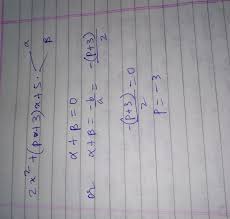 2x² + (p+3)x + 5 . α β
α + β = 0
or α + β = -b/a = -(p+3)/2
-(p+3)/2 = 0
p = -3